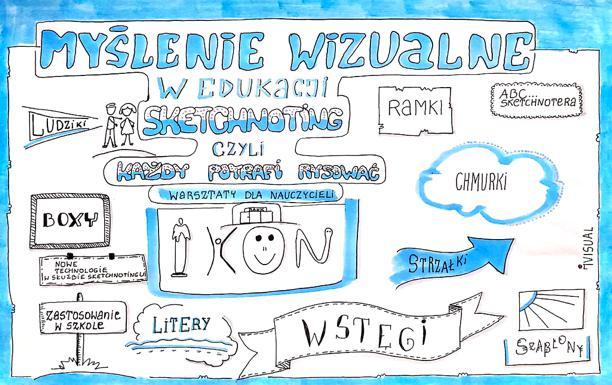 MYŚLENIE WIZUALNE
W EDUKACJI
SKETCHNOTING
CZYLI
KAŻDY POTRAFI RYSOWAĆ
WARSZTATY DLA NAUCZYCIELI
LUDZIKI
RAMKI
ABC...
SKETCHNOTERA
CHMURKI
BOXY
IKON
NOWE
TECHNOLOGIE
W SŁUŻBIE SKETCHNOTINGU
STRZAŁKI
MVISUAL
ZASTOSOWANIE
W SZKOLE
LITERY
WSTĘGI
SZABLONY